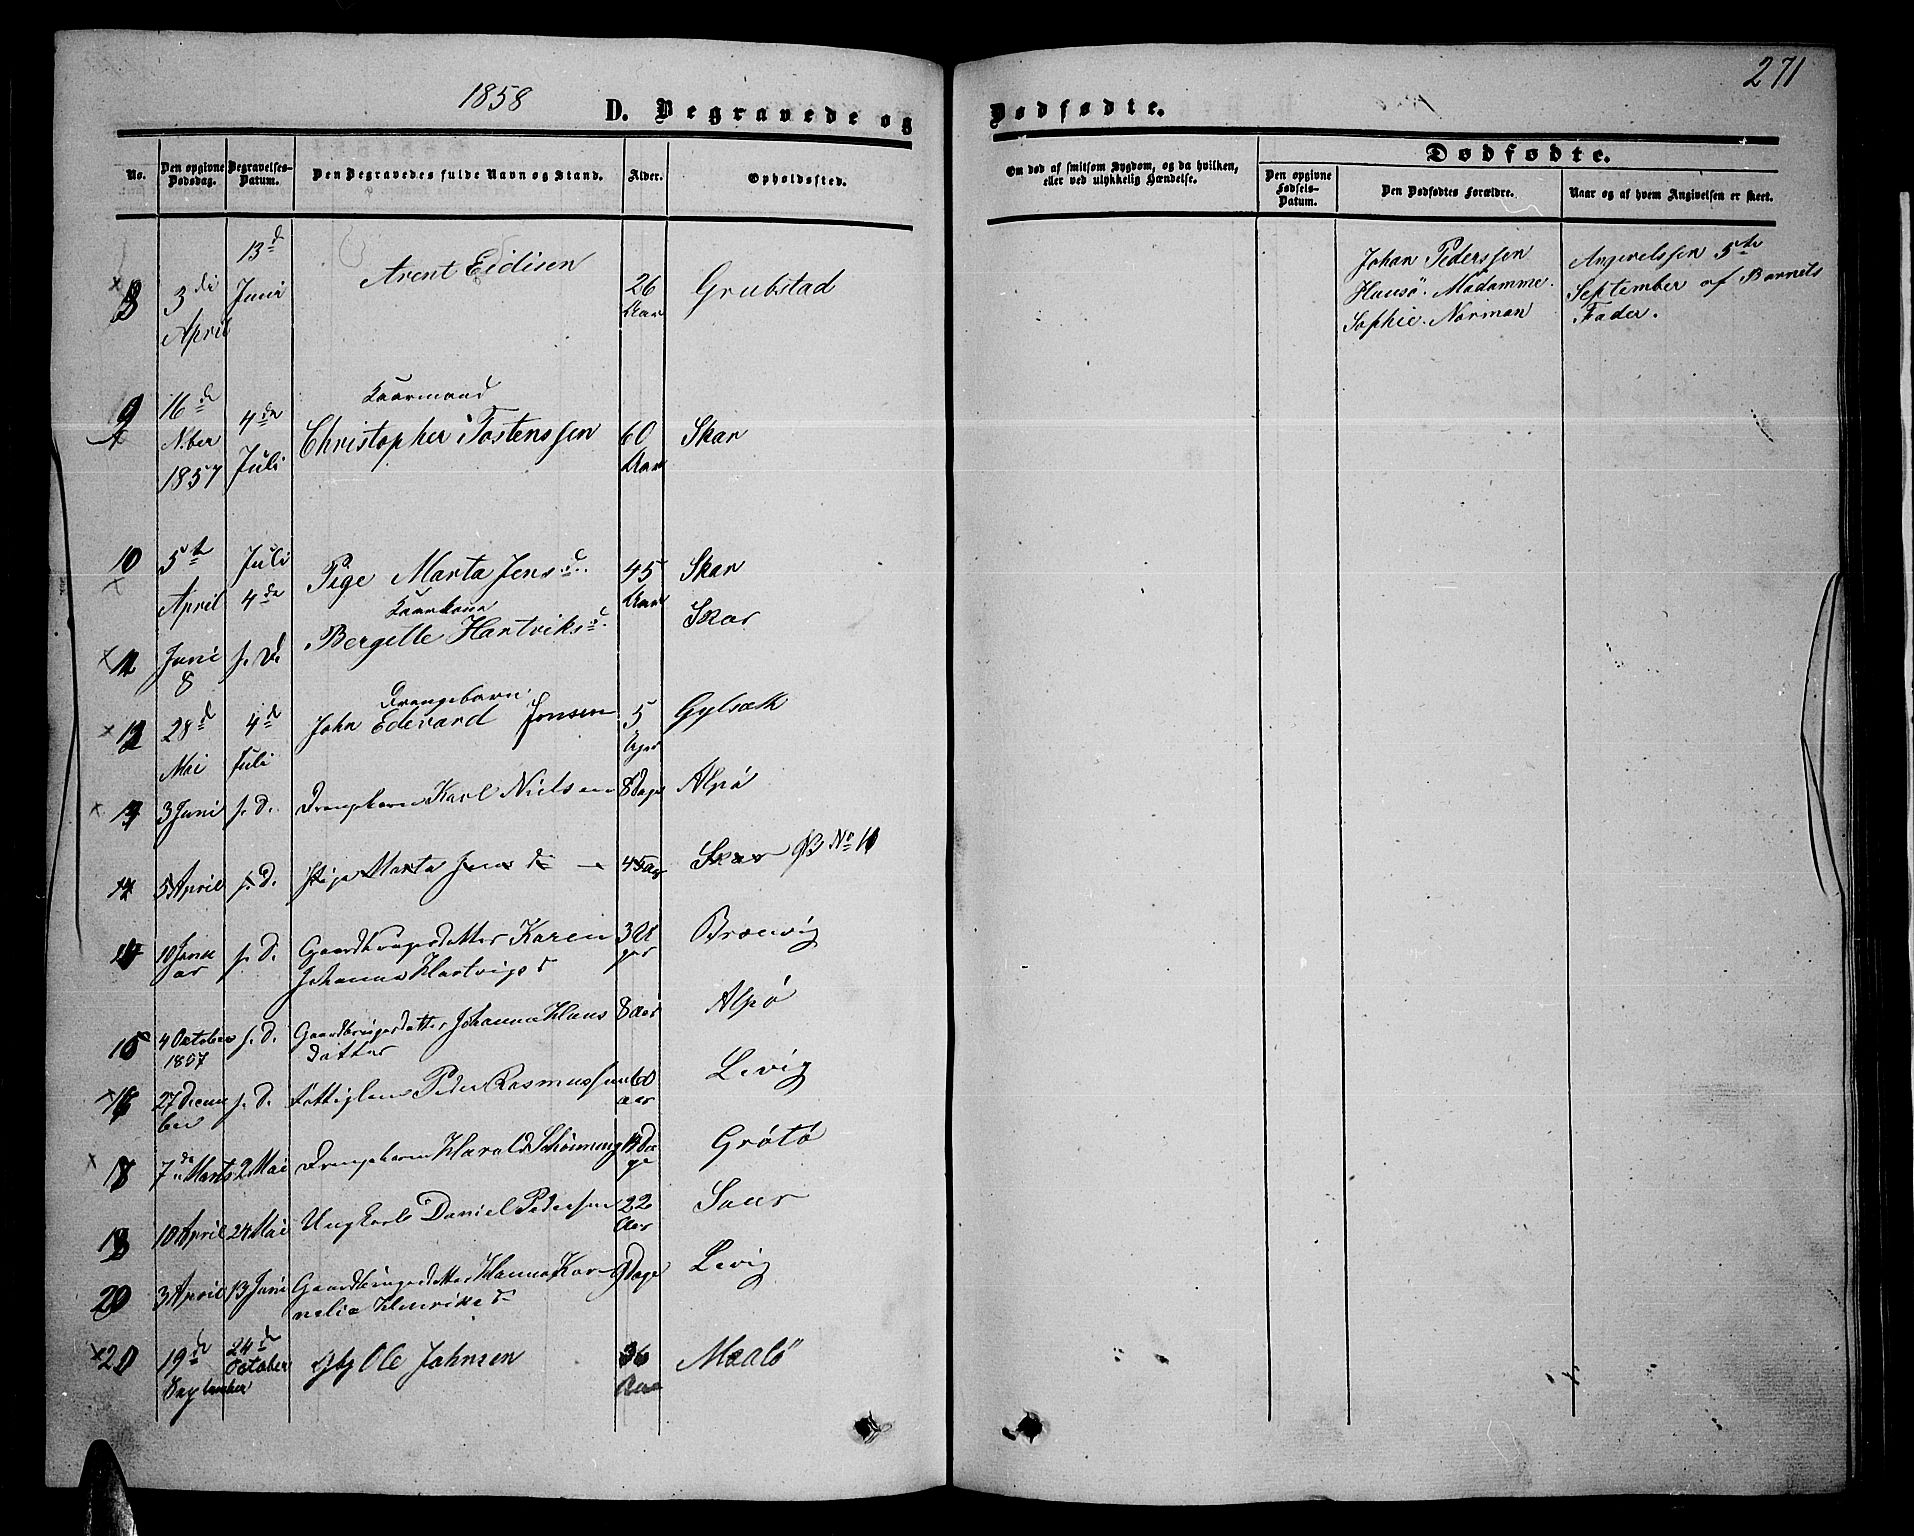 1858
D. Begravede og
Dødfødte.
271
No.
Den opgivne Dødsdag.
Begravelses-Datum.
Den Begravedes fulde Navn og Stand.
Alder.
Opholdssted.
Om død af smitsom Sygdom, og da hvilken, eller ved ulykkelig Hændelse.
Dødfødte.
Den opgivne Fødsels-Datum.
Den Dødfødtes Forældre.
Naar og af hvem Angivelsen er skeet.
8 3 April 13d Juni Arent Eidisen 26 Aar Grubstad
Johan Pederssen
Madamme
Sophie Norman
Angivelssen 5te
September af Barnets
Fader.
9 16de Nber 1857 4de Juli Kaarmand Christopher Tostenssen 60 Aar Skar
10 5te April Juli 4de Pige Marta Jensd. 45 Aar Skar
Juni 8 s. D. Kaarkone Bergitte Hartviksd. Skar
12 28d Mai 4d Juli Drengebarn John Edevard Jonsen 5 Uger
3 Juni s. D. Drengebarn Karl Nielsen 8 Dage Alpø
5 April s. D. Pige Marta Jensd 45 Aar Skar No 10
10 Januar s. D. Gaardbrugerdatter Karen 3 Uger
Johanna Hartvigsd
15 4 October 1857 s. D. Gaardbrugerdatter Johanna Klaus 8 Aar Alpø
datter
16 27 December s. D. Fattiglem Peder Rasmussen 60 aar Levig
7de Marts 2 Mai Drengebarn Harald Schønning Dage Grøtø
10 April 24 Mai Ungkarl Daniel Pedersen 22 Aar
20 3 April 13 Juni Gaardbrugerdatter Hanna Kor- 9 Dage Levig
nelia Henriksd
19de September 24de October Ole Johnsen 36 Aar Maalø